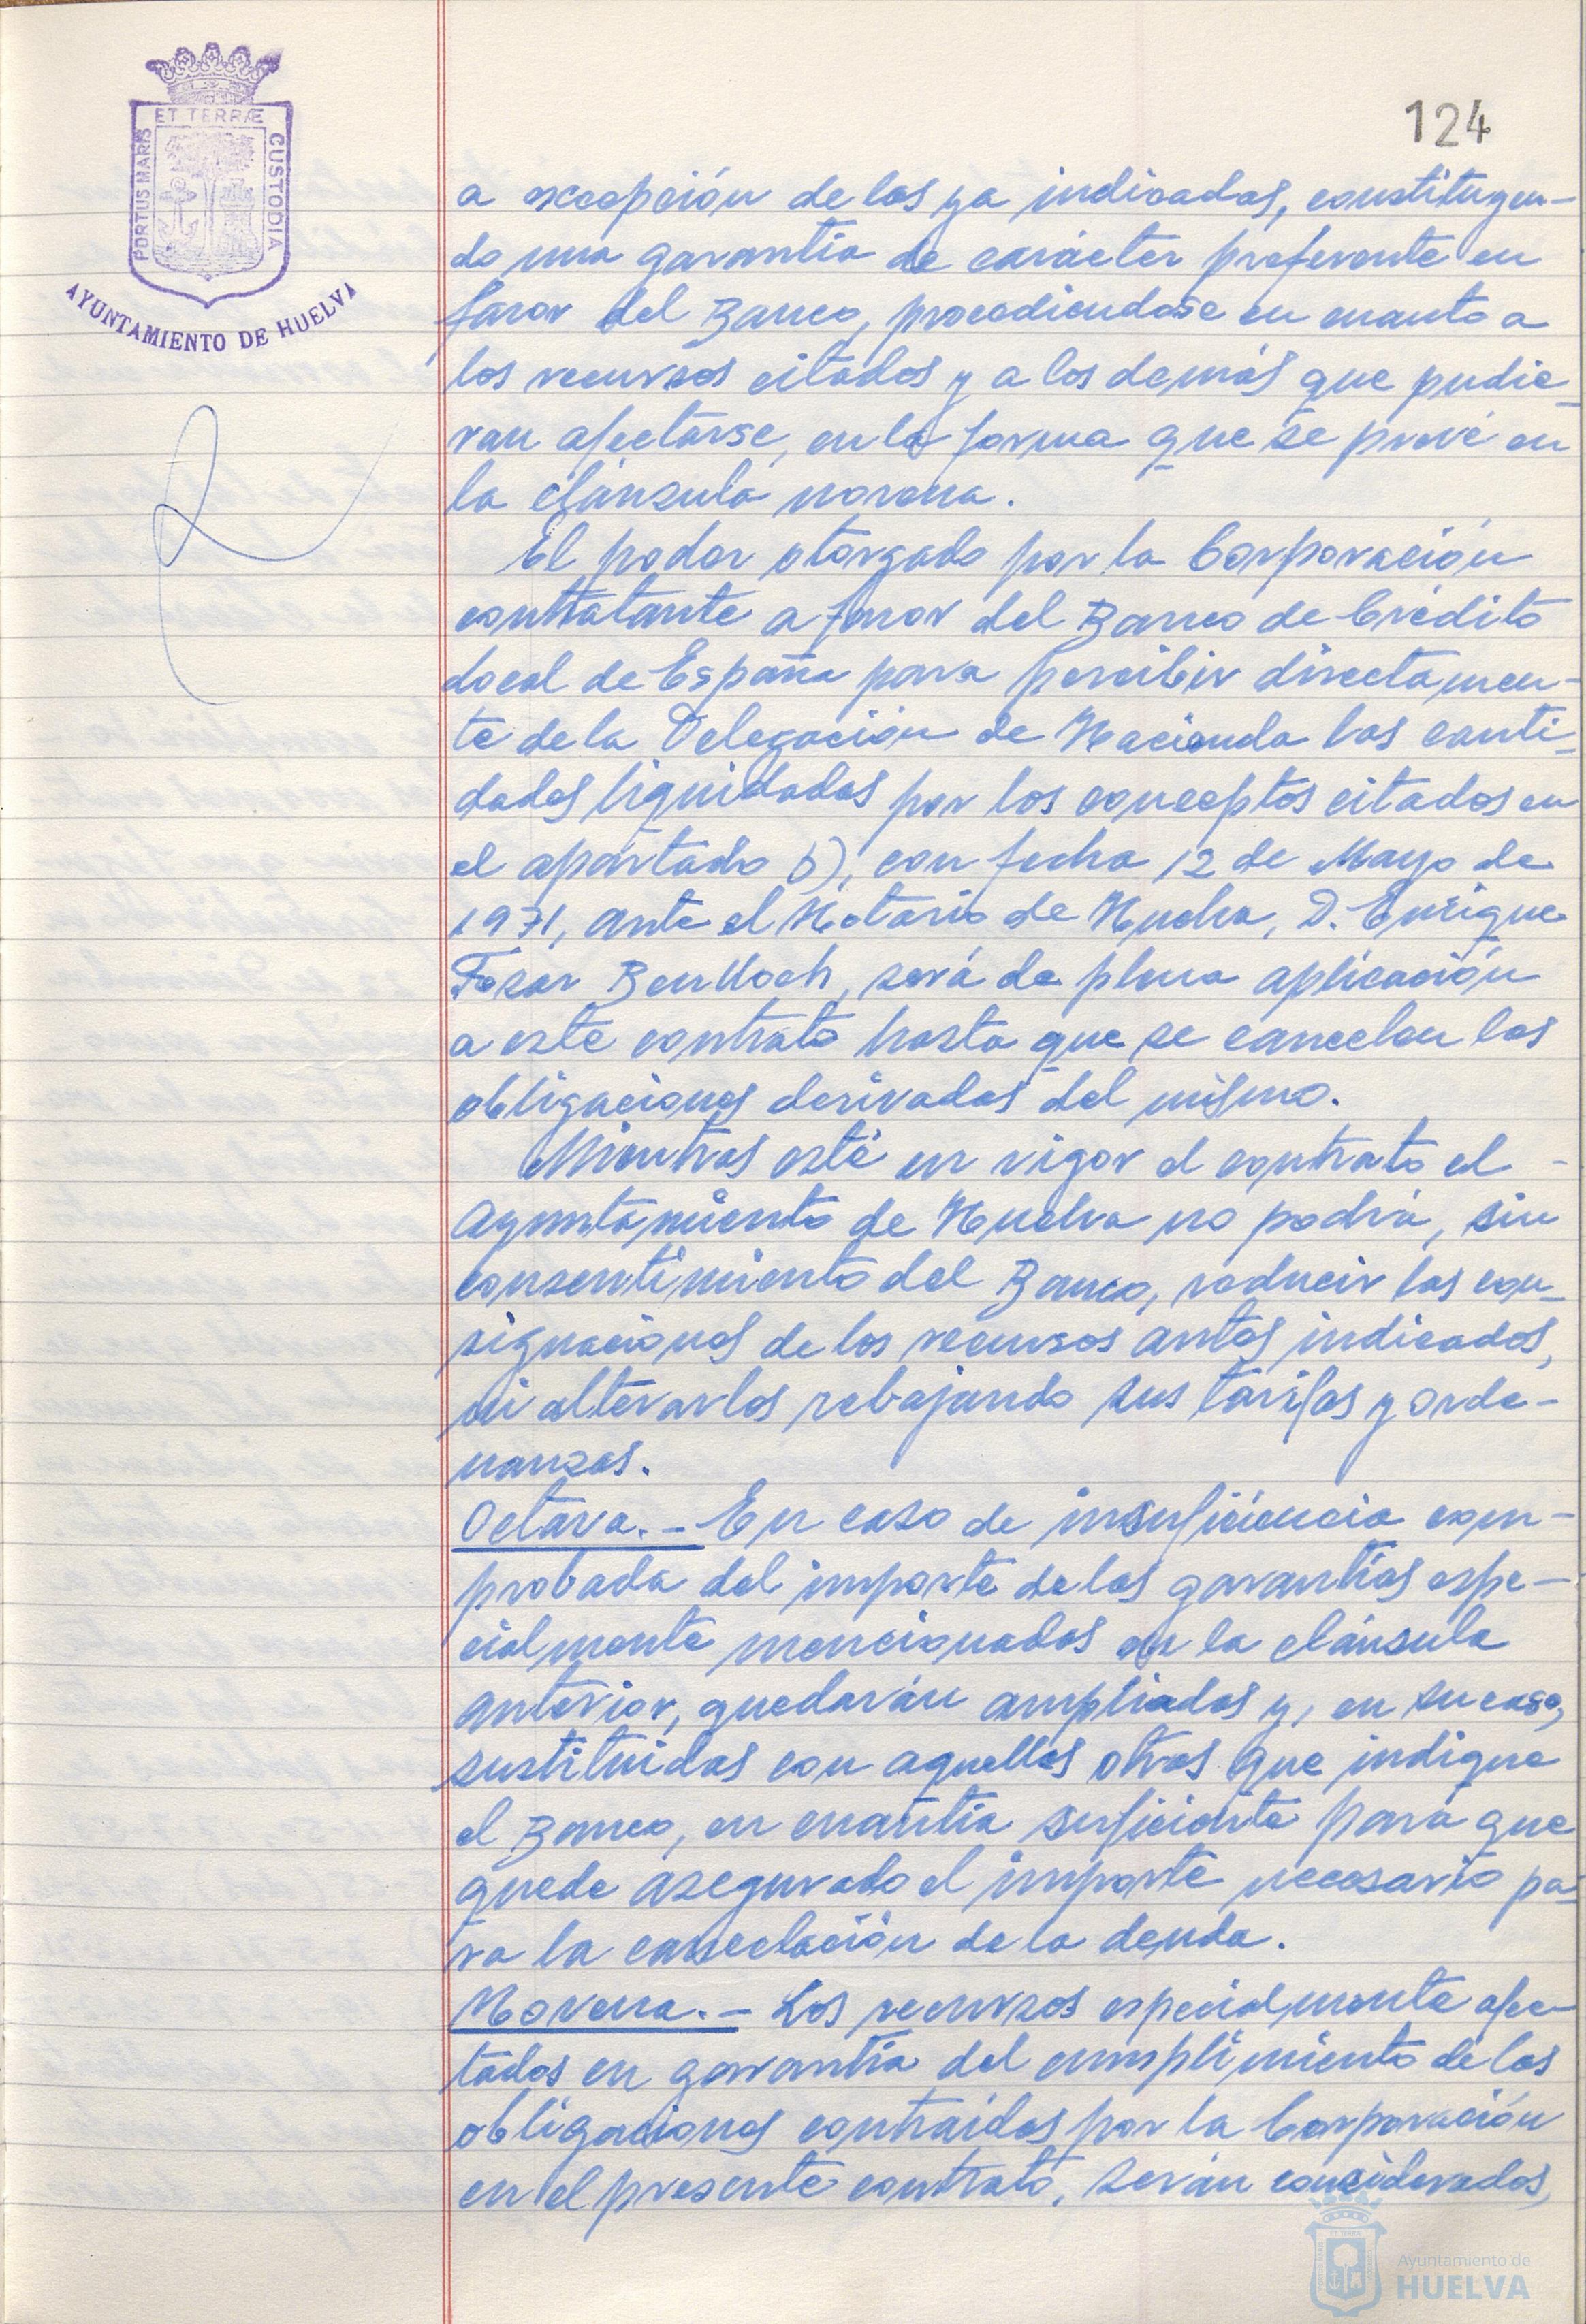 124
ET TERRÆ
PORTUS MARIS
CUSTODIA
AYUNTAMIENTO DE HUELVA
a excepción de las ya indicadas, constituyen-
do una garantía de carácter preferente en
favor del Banco, procediendose en cuanto a
los recursos citados y a los demás que pudie-
ran afectarse, en la forma que se prevé en
la cláusula novena.
El poder otorgado por la Corporación
contratante a favor del Banco de Crédito
Local de España para percibir directamen-
te de la Delegación de Hacienda las canti-
dades liquidadas por los conceptos citados en
el apartado b), con fecha 12 de Mayo de
1971, ante el Notario de Huelva, D. Enrique
Fosar Benlloch, será de plena aplicación
a este contrato hasta que se cancelen las
obligaciones derivadas del mismo.
Mientras esté en vigor el contrato el -
Ayuntamiento de Huelva no podrá, sin
consentimiento del Banco, reducir las con-
signaciones de los recursos antes indicados,
ni alterarlos rebajando sus tarifas y orde-
nanzas.
Octava.- En caso de insuficiencia com-
probada del importe de las garantías espe-
cialmente mencionadas en la cláusula
anterior, quedarán ampliadas y, en su caso,
sustituidas con aquellas otras que indique
el Banco, en cuantía suficiente para que
quede asegurado el importe necesario pa-
ra la cancelación de la deuda.
Novena.- Los recursos especialmente afec-
tados en garantía del cumplimiento de las
obligaciones contraídas por la Corporación
en el presente contrato, serán considerados,
Ayuntamiento de
HUELVA